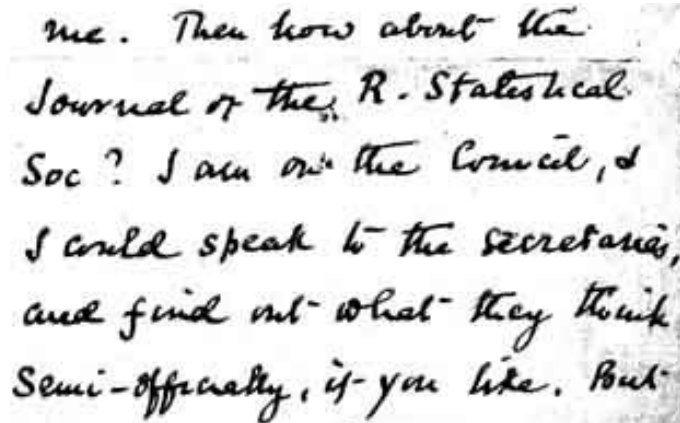 me. Then how about the
Journal of the R. Statistical
Soc? I am on the Council, &
I could speak to the secretaries,
and find out what they think
semi-officially, if you like. But